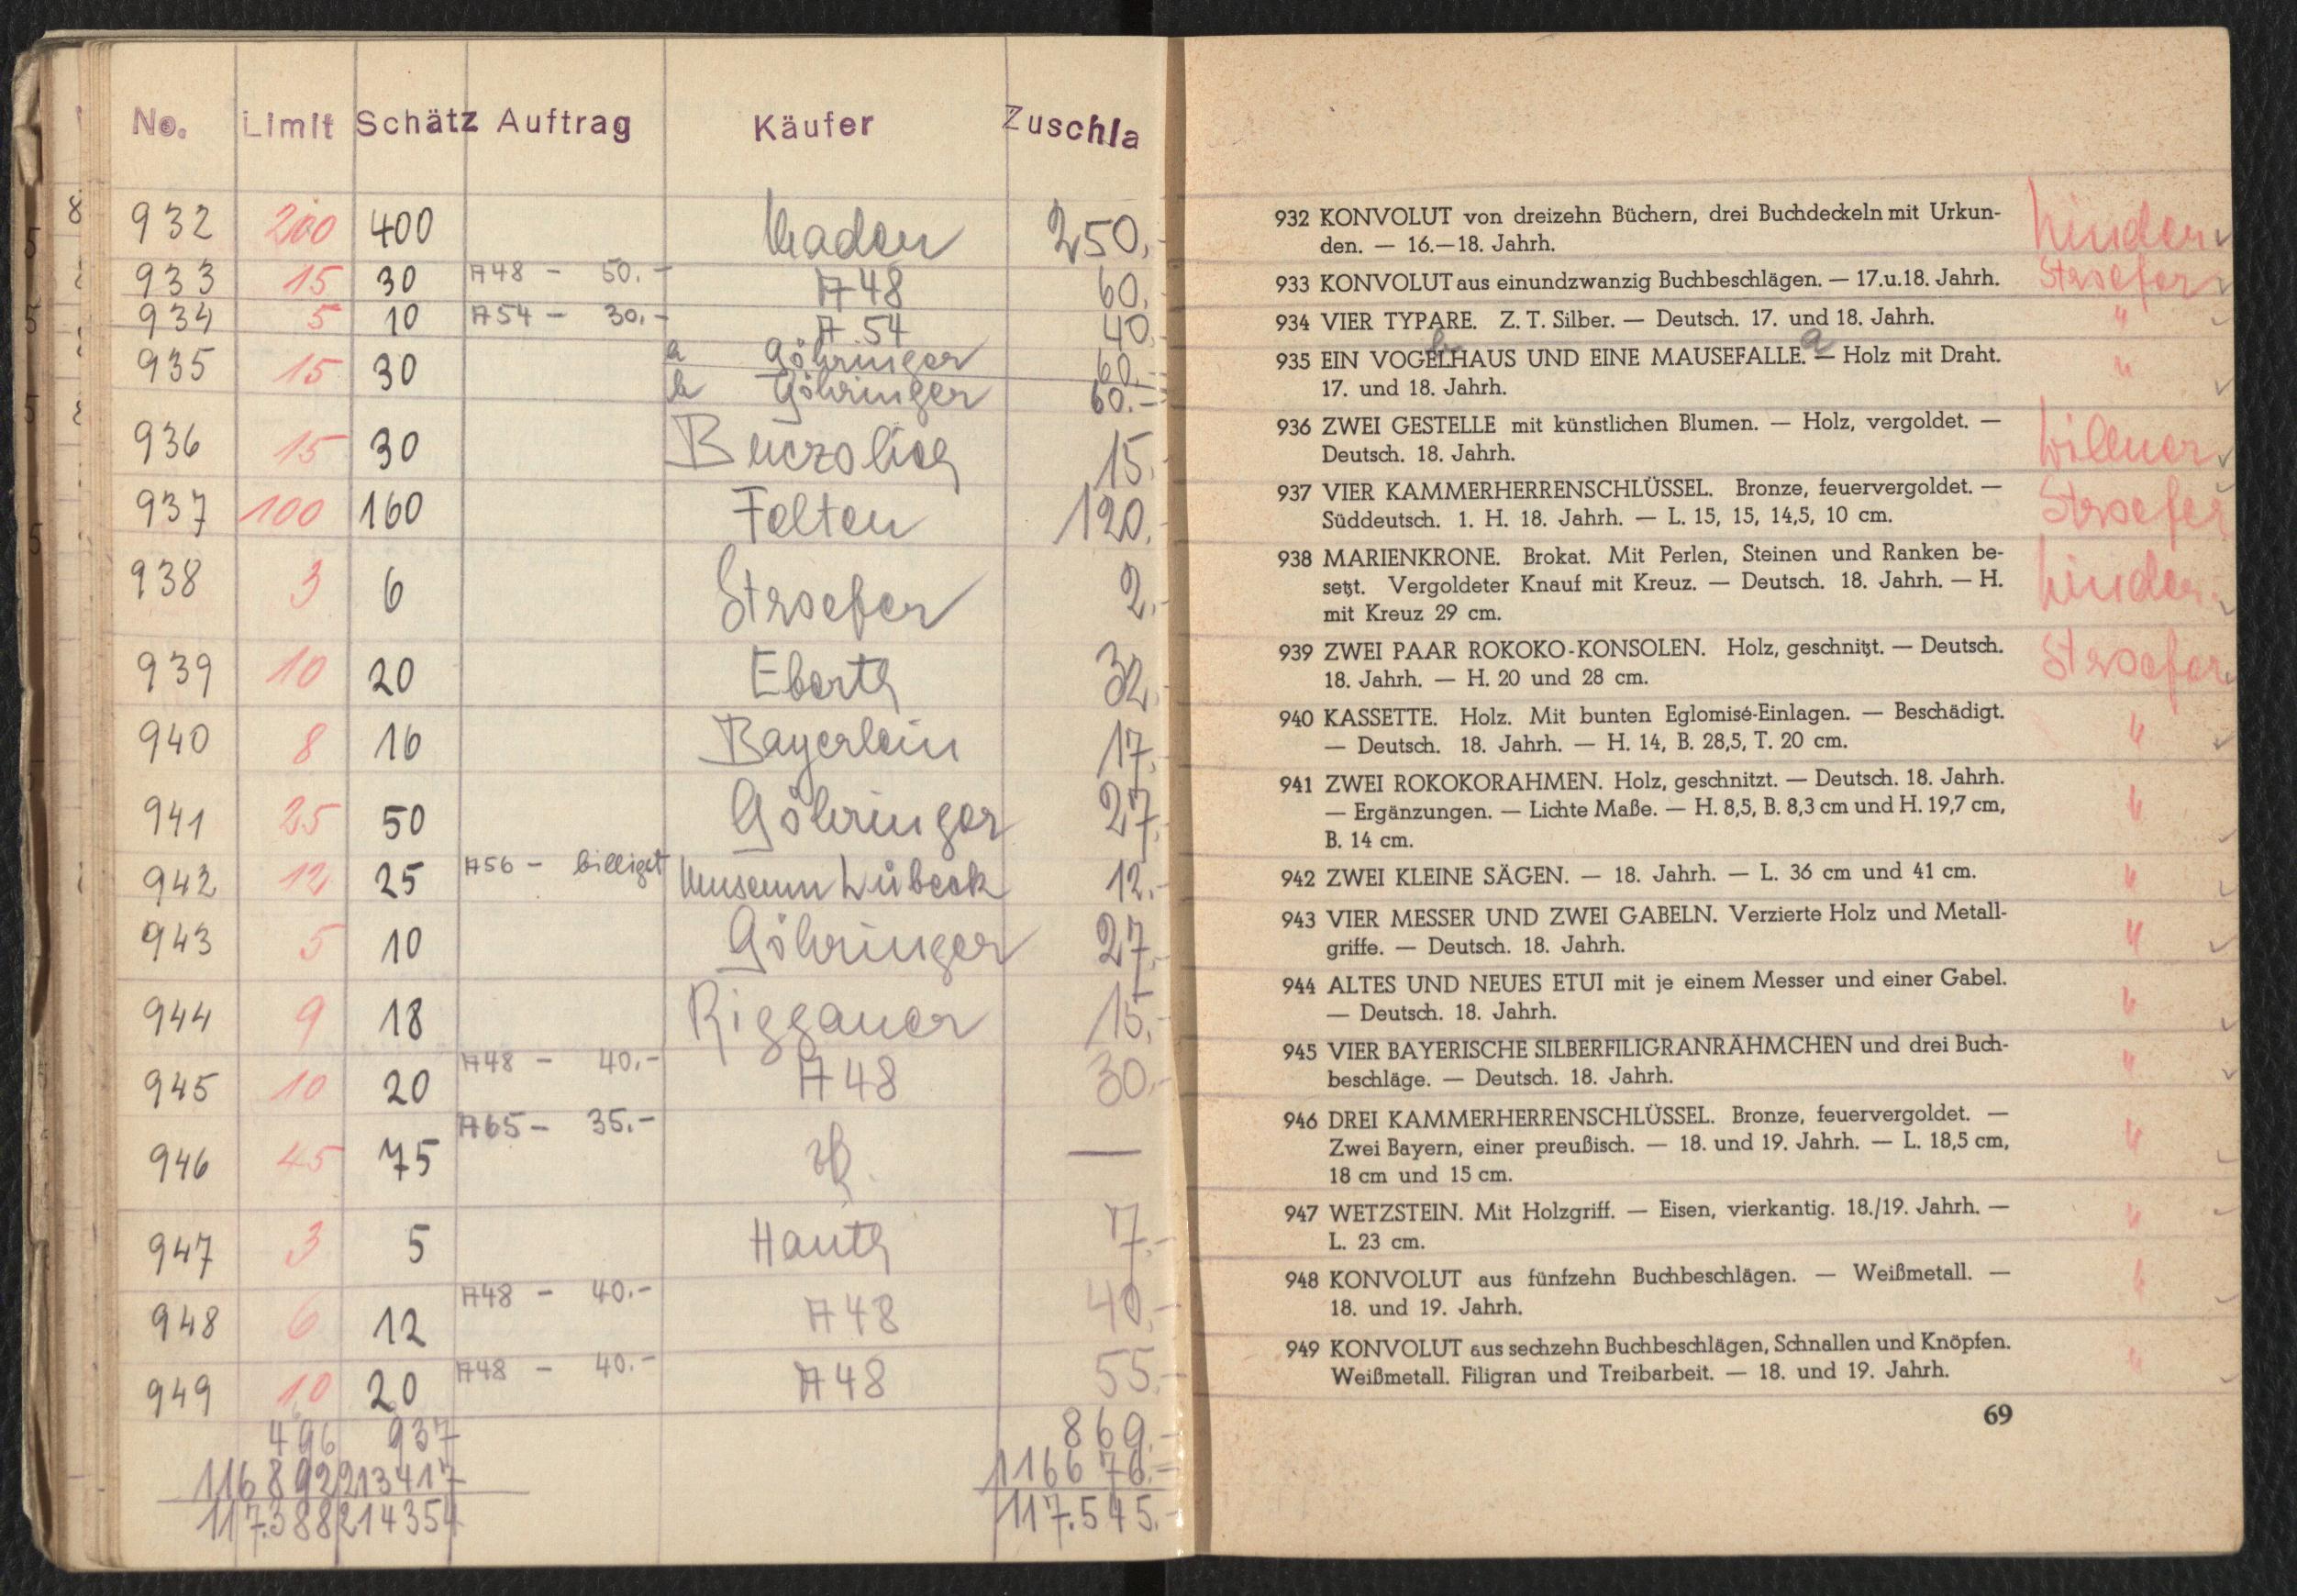 No. Limit Schätz Auftrag Käufer Zuschla
932 200 400 Maden 250.-
933 15 30 A48 - 50.- A48 60.-
934 5 10 A54 - 30.- A.54 40.-
935 15 30 a Göhringer 60.-
b Göhringer 60.-
936 15 30 15.-
937 100 160 Felten 120.-
938 3 6 Stroefer 2.-
939 10 20 Eberth 32.-
940 8 16 Bayerlein 17.-
941 25 50 Göhringer 27.-
942 12 25 A56 - billigst Museum Lübeck 12.-
943 5 10 Göhringer 27.-
944 9 18 Riggauer 15.-
945 10 20 A48 - 40.- A48 30.-
946 45 75 A65 - 35.- —
947 3 5 Hauth 7.-
948 6 12 A48 - 40.- A48 40.-
949 10 20 A48 - 40.- A48 55.-
496 937 869.-
116892 213417 116676.-
117.388 214354 117.545.-
932 KONVOLUT von dreizehn Büchern, drei Buchdeckeln mit Urkun-
den. — 16.—18. Jahrh.
933 KONVOLUT aus einundzwanzig Buchbeschlägen. — 17.u.18. Jahrh. Stroefer
934 VIER TYPARE. Z. T. Silber. — Deutsch. 17. und 18. Jahrh. "
b a
935 EIN VOGELHAUS UND EINE MAUSEFALLE. — Holz mit Draht. "
17. und 18. Jahrh.
936 ZWEI GESTELLE mit künstlichen Blumen. — Holz, vergoldet. — Willner
Deutsch. 18. Jahrh.
937 VIER KAMMERHERRENSCHLÜSSEL. Bronze, feuervergoldet. — Stroefer
Süddeutsch. 1. H. 18. Jahrh. — L. 15, 15, 14,5, 10 cm.
938 MARIENKRONE. Brokat. Mit Perlen, Steinen und Ranken be-
setzt. Vergoldeter Knauf mit Kreuz. — Deutsch. 18. Jahrh. — H.
mit Kreuz 29 cm.
939 ZWEI PAAR ROKOKO-KONSOLEN. Holz, geschnitzt. — Deutsch. Stroefer
18. Jahrh. — H. 20 und 28 cm.
940 KASSETTE. Holz. Mit bunten Eglomisé-Einlagen. — Beschädigt. "
— Deutsch. 18. Jahrh. — H. 14, B. 28,5, T. 20 cm.
941 ZWEI ROKOKORAHMEN. Holz, geschnitzt. — Deutsch. 18. Jahrh. "
— Ergänzungen. — Lichte Maße. — H. 8,5, B. 8,3 cm und H. 19,7 cm,
B. 14 cm.
942 ZWEI KLEINE SÄGEN. — 18. Jahrh. — L. 36 cm und 41 cm. "
943 VIER MESSER UND ZWEI GABELN. Verzierte Holz und Metall- "
griffe. — Deutsch. 18. Jahrh.
944 ALTES UND NEUES ETUI mit je einem Messer und einer Gabel. "
— Deutsch. 18. Jahrh.
945 VIER BAYERISCHE SILBERFILIGRANRÄHMCHEN und drei Buch- "
beschläge. — Deutsch. 18. Jahrh.
946 DREI KAMMERHERRENSCHLÜSSEL. Bronze, feuervergoldet. — "
Zwei Bayern, einer preußisch. — 18. und 19. Jahrh. — L. 18,5 cm,
18 cm und 15 cm.
947 WETZSTEIN. Mit Holzgriff. — Eisen, vierkantig. 18./19. Jahrh. — "
L. 23 cm.
948 KONVOLUT aus fünfzehn Buchbeschlägen. — Weißmetall. — "
18. und 19. Jahrh.
949 KONVOLUT aus sechzehn Buchbeschlägen, Schnallen und Knöpfen. "
Weißmetall. Filigran und Treibarbeit. — 18. und 19. Jahrh.
69